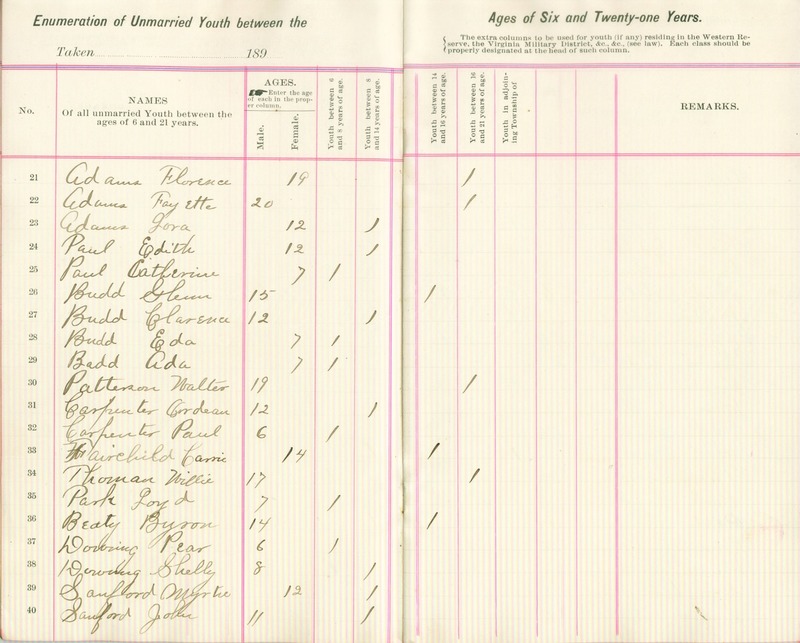 Enumeration of Unmarried Youth between the Ages of Six and Twenty-one Years.
The extra columns to be used for youth (if any) residing in the Western Re-
serve, the Virginia Military District, &c., &c., (see law). Each class should be
properly designated at the head of such column.
Taken 189
No.
NAMES
Of all unmarried Youth between the
ages of 6 and 21 years.
AGES.
Enter the age
of each in the prop-
er column.
Male.
Female.
Youth between 6
and 8 years of age.
Youth between 8
and 14 years of age.
Youth between 14
and 16 years of age.
Youth between 16
and 21 years of age.
Youth in adjoin-
ing Township of
REMARKS.
21 Adams Florence 19 /
22 Adams Fayette 20 /
23 Adams Lora 12 /
24 Paul Edith 12 /
25 Paul Catherine 7 /
26 Budd Glenn 15 /
27 Budd Clarence 12 /
28 Budd Eda 7 /
29 Badd Ada 7 /
30 Patterson Walter 19 /
31 Carpenter Cordean 12 /
32 Carpenter Paul 6 /
33 Fairchild Carrie 14 /
34 Thoman Willie 17 /
35 Park Loyd 7 /
36 Beaty Byron 14 /
37 Downing Pear 6 /
38 Downing Shelly 8 /
39 Sanford Myrtie 12 /
40 Sanford John 11 /